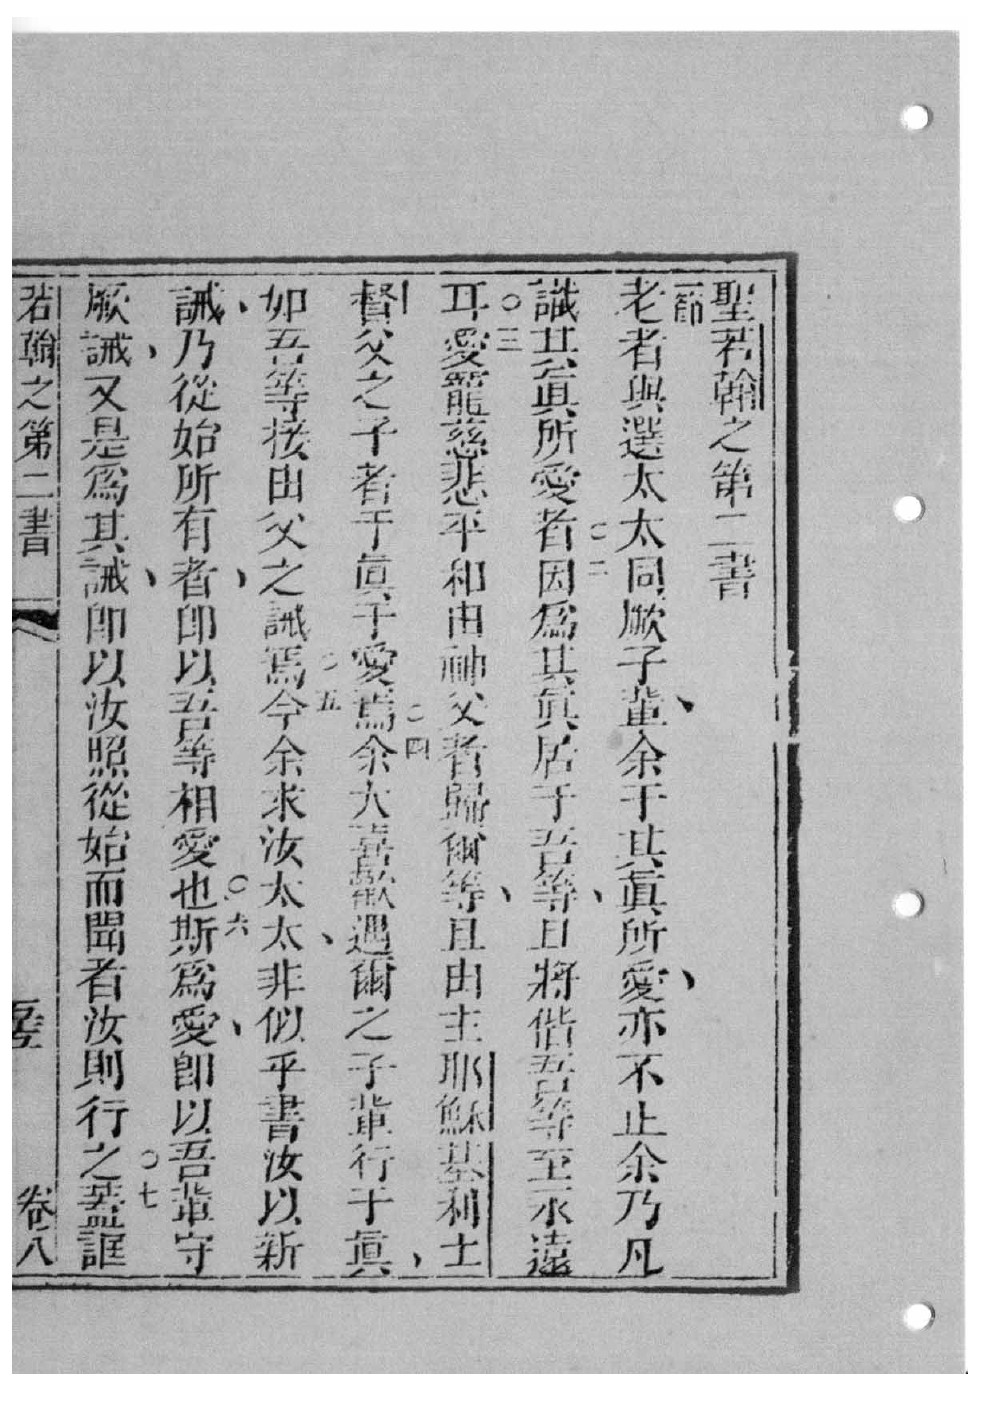 聖若翰之第二書
一節
老者與選太太同厥子輩、余于其眞所愛、亦不止余乃凡
識其眞所愛者○二因爲其眞居于吾等、且將偕吾等至永遠
耳○三愛寵慈悲平和由神父者歸爾等、且由主耶穌基利士
督父之子者于眞于愛焉○四余大喜歡遇爾之子輩行于眞、
如吾等接由父之誡焉○五今余求汝太太、非似乎書汝以新
誡、乃從始所有者、卽以吾等相愛也○六斯爲愛、卽以吾輩守
厥誡、又是爲其誡、卽以汝照從始而聞者汝則行之○七蓋誆
若翰之第二書
卷八